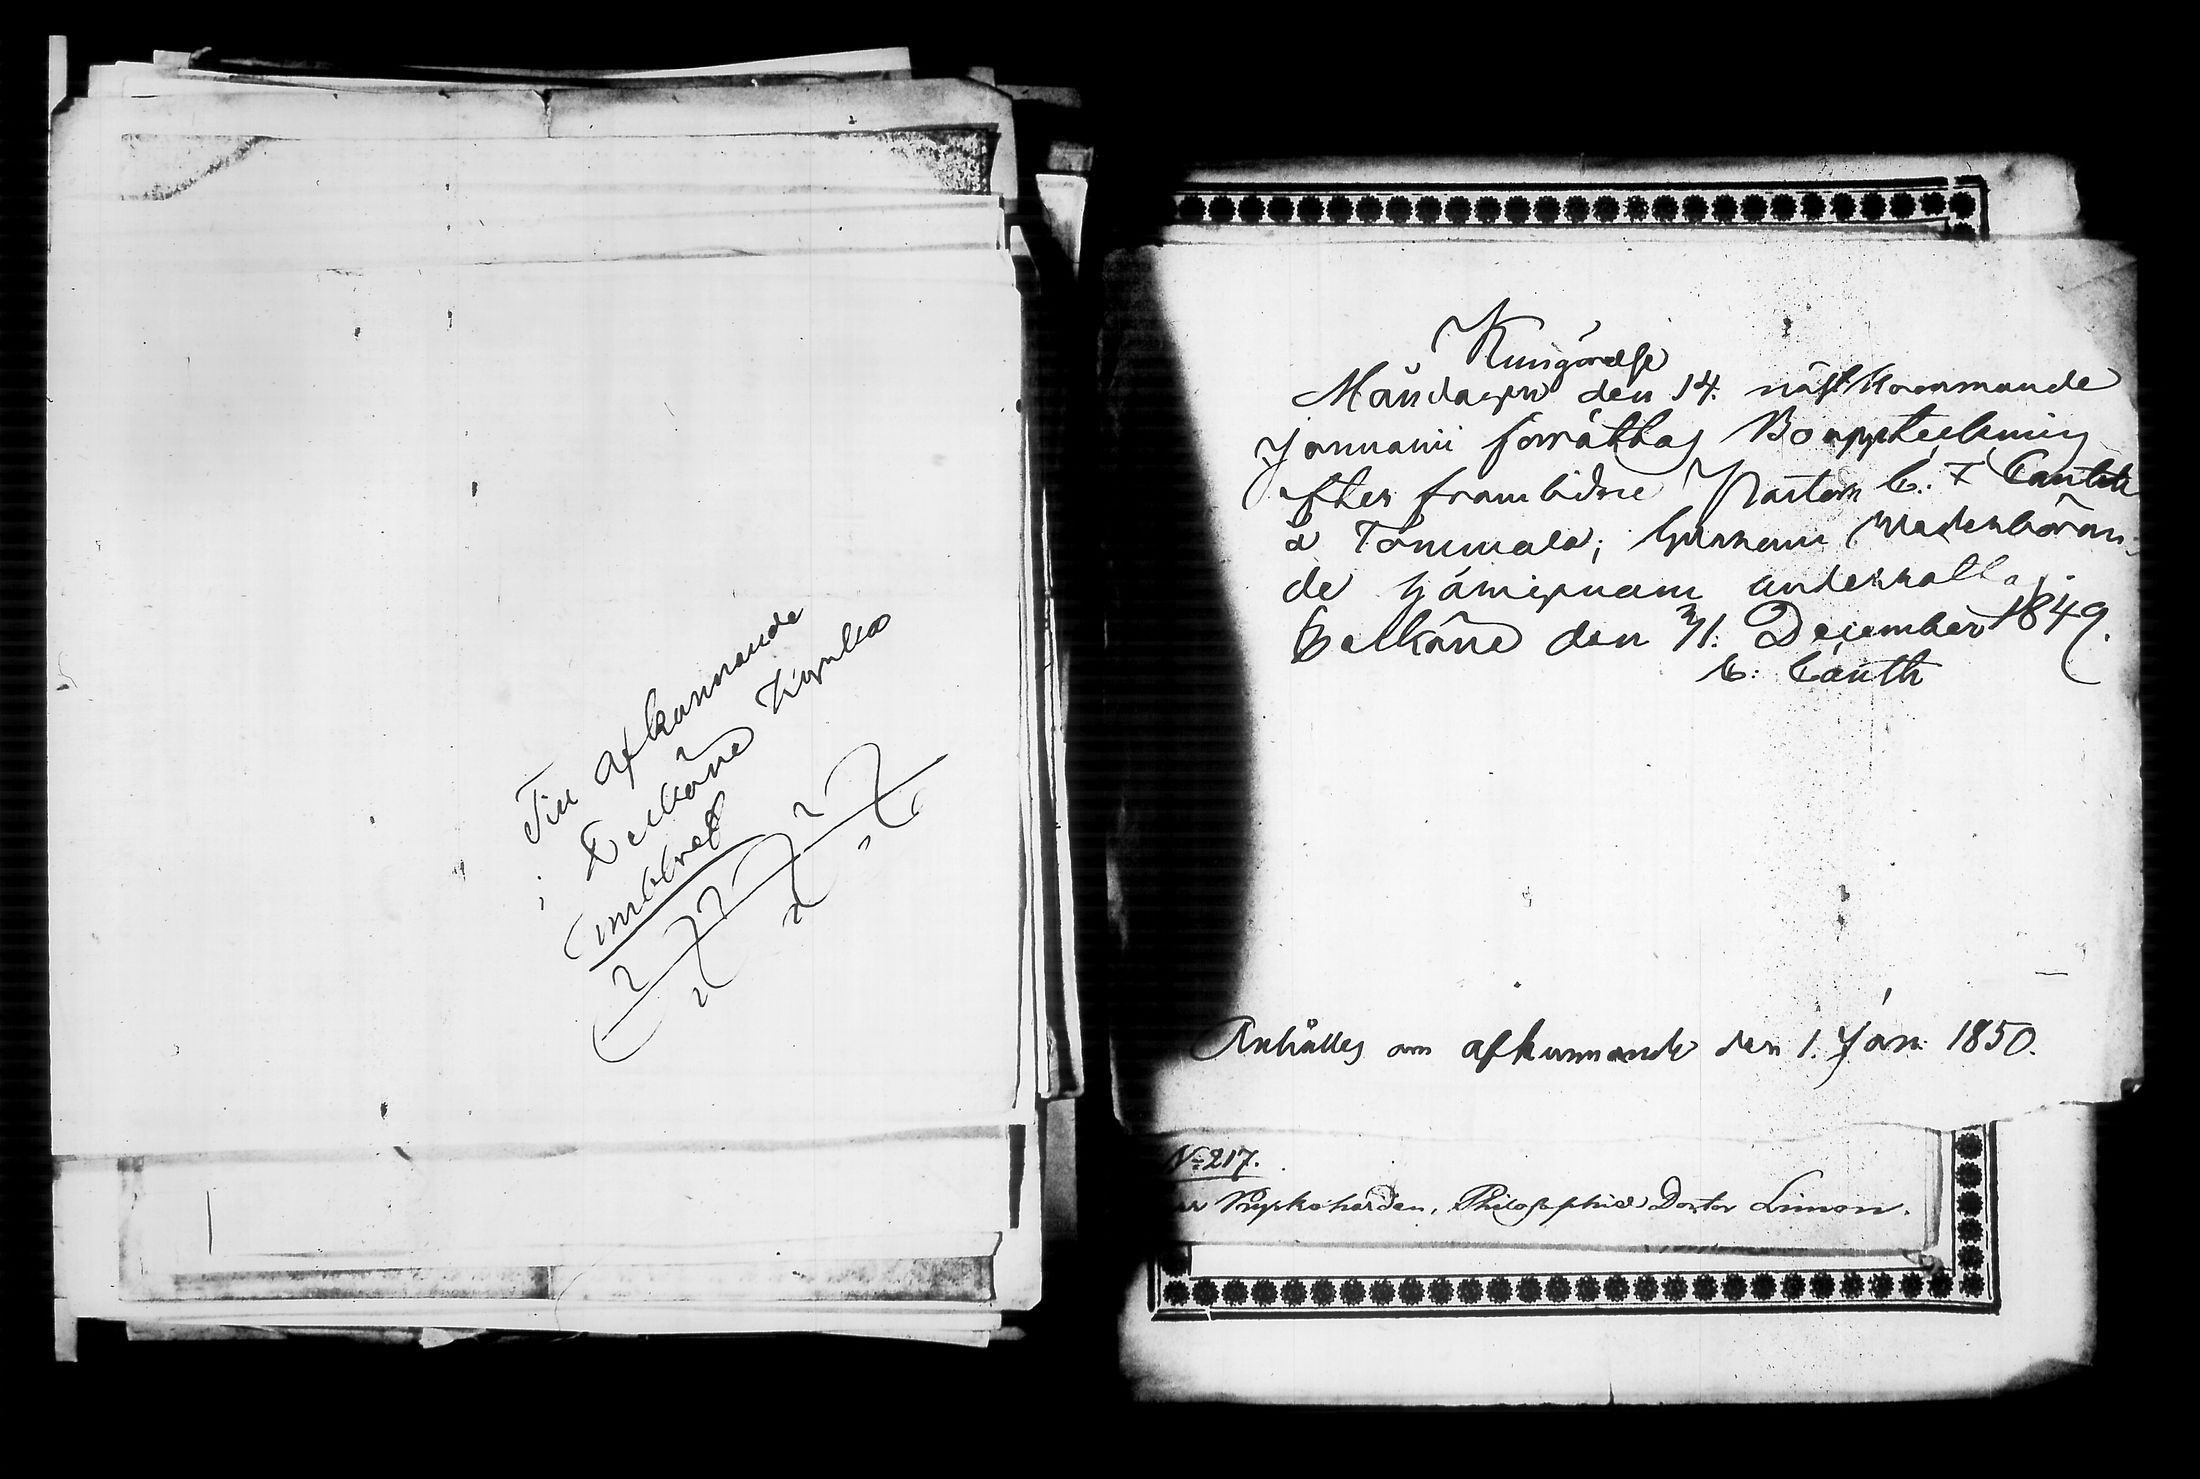 Till afkunnande
i Pelkäne Kyrka
omböres
Kungörelse
Måndagen den 14. nästkommande
Januarii forrättas Bouppteckning
efter framlidne Pastorn C. F. Canth
å Tommola; hvarom vederböran-
de härigenom underrättas.
Pelkäne den 31. December 1849.
C: Canth
Anhålles om afkunnande den 1. Jan: 1850.
No 217.
Kyrkoherden, Philosophiæ Doctor Limon.